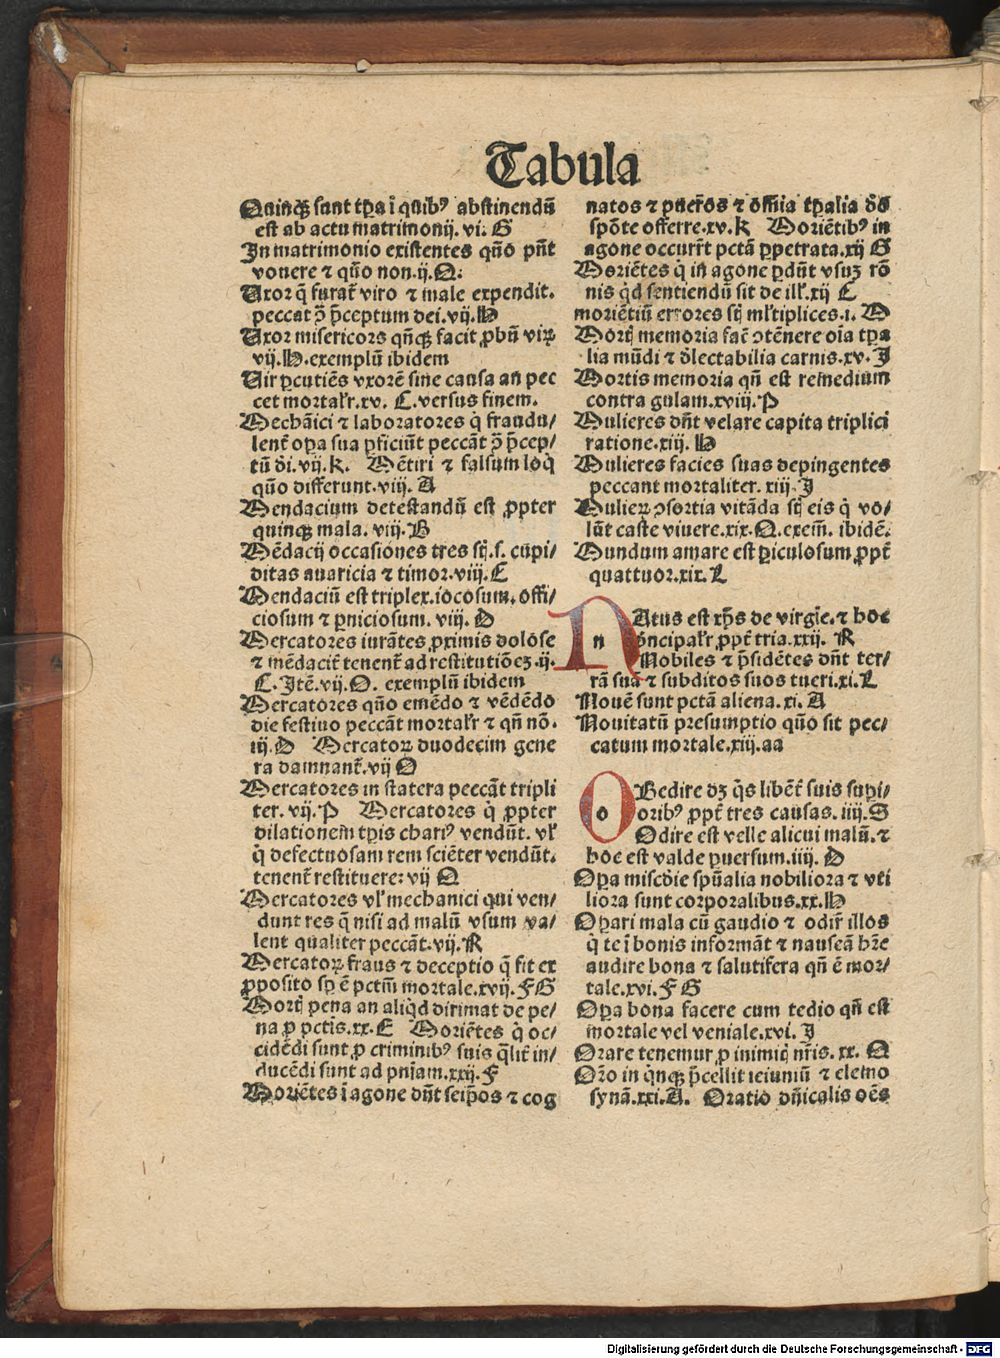 Tabula
Quinqꝫ sunt tꝑa ĩ quibꝰ abstinendũ
est ab actu matrimonij. vi. G
In matrimonio existentes qũo pñt
vouere ⁊ qũo non.ij.Q.
Uxor q̃ furat̃ viro ⁊ male expendit.
peccat ↄ̃ p̃ceptum dei.vij.H
Uxor misericors qñqꝫ facit ꝓbũ virꝝ
vij.H.exemplũ ibidem
Uir ꝑcutiẽs vxorẽ sine causa an pec
cet mortal'r.xv. C.versus finem.
Mechãici ⁊ laboratores q̇ fraudu/
lent̃ oꝑa sua ꝑficiũt peccãt ↄ̃ p̃cep/
tũ dĩ.vij.K. Mẽtiri ⁊ falsum loq̇
qũo differunt.viij. A
Mendacium detestandũ est ꝓpter
quinqꝫ mala. viij.B
Mẽdacij occasiones tres sꝫ.s. cupi/
ditas auaricia ⁊ timor.viij.C
Mendaciũ est triplex.iocosum.offi/
ciosum ⁊ ꝑniciosum. viij. D
Mercatores iurãtes ꝓximis dolose
⁊ mẽdacit̃ tenent̃ ad restitutiõeꝫ.ij.
C. Itẽ.vij.O. exemplũ ibidem
Mercatores qũo emẽdo ⁊ vẽdẽdo
die festiuo peccãt mortal'r ⁊ qñ nõ.
iij.D Mercatoꝝ duodecim gene
ra damnant̃.vij O
Mercatores in statera peccãt tripli
ter. vij.P Mercatores q̇ ꝓpter
dilationem tꝑis chariꝰ vendũt. vl'
q̇ defectuosam rem sciẽter vendũt.
tenent̃ restituere: vij Q
Mercatores vl' mechanici qui ven/
dunt res q̃ nisi ad malũ vsum va/
lent qualiter peccãt.vij.R
Mercatoꝝ fraus ⁊ deceptio q̃ fit ex
ꝓposito sꝑ ẽ pctm̃ mortale.xvij.FG
Mortꝭ pena an aliq̇d dirimat de pe/
na ꝓ pctĩs.xx.E Moriẽtes q̇ oc/
cidẽdi sunt ꝓ criminibꝰ suis q̃lit̃ in/
ducẽdi sunt ad pnĩam.xxij.F
Moriẽtes ĩ agone dñt seip̃os ⁊ cog
natos ⁊ puer̃os ⁊ om̃ia tꝑalia dõ
spõte offerre.xv.K Moriẽtibꝰ in
agone occurr̃t pctã ꝑpetrata.xij G
Moriẽtes q̇ in agone ꝑdũt vsuꝫ rõ
nis q̇d sentiendũ sit de ill'.xij C
moriẽtiũ errores sꝫ ml'tiplices.i. M
Mortꝭ memoria fac̃ ↄtẽnere oĩa tꝑa
lia mũdi ⁊ dl̃ectabilia carnis.xv. I
Mortis memoria qñ est remedium
contra gulam.xviij.P
Mulieres dñt velare capita triplici
ratione.xiij. H
Mulieres facies suas depingentes
peccant mortaliter. xiij.I
Mulieꝝ ↄsortia vitãda sꝫ eis q̇ vo/
lũt caste viuere.xix.Q.exem̃. ibidẽ.
Mundum amare est ꝑiculosum ꝓpt̃
quattuor.xix.L
N Atus est xp̃s de virgĩe.⁊ hoc
n p̃ncipal'r ꝓpt̃ tria.xxij. R
Nobiles ⁊ p̃sidẽtes dñt ter/
rã suã ⁊ subditos suos tueri.xi.L
Nouẽ sunt pctã aliena.xi. A
Nouitatũ presumptio qũo sit pec/
catum mortale.xiij.aa
O Bedire dꝫ q̃s libent̃ suis suꝑi/
o oribꝰ ꝓpt̃ tres causas. iiij.S
Odire est velle alicui malũ.⁊
hoc est valde ꝑuersum.iiij. D
Oꝑa miscd̃ie spũalia nobiliora ⁊ vti
liora sunt corporalibus.xx.H
Oꝑari mala cũ gaudio ⁊ odir̃ illos
q̇ te ĩ bonis informãt ⁊ nauseã hr̃e
audire bona ⁊ salutifera qñ ẽ mor/
tale.xvi.F G
Oꝑa bona facere cum tedio qñ est
mortale vel veniale.xvi. I
Orare tenemur ꝓ inimicꝭ nr̃is. xx. Q
Or̃o in q̇nqꝫ p̃cellit ieiuniũ ⁊ elemo
synã.xxi.A. Oratio dñicalis oẽs
Digitalisierung gefördert durch die Deutsche Forschungsgemeinschaft - DFG